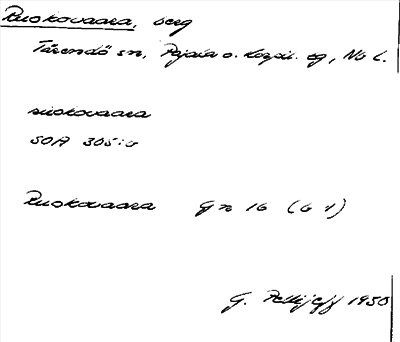 Ruokovaara, berg
Tärendö sn, Pajala o. Korpil. tg, Nb l.
ruokovaara
SOA 305:6
Ruokovaara G n 16 (G 1)
G. Pellijeff 1950